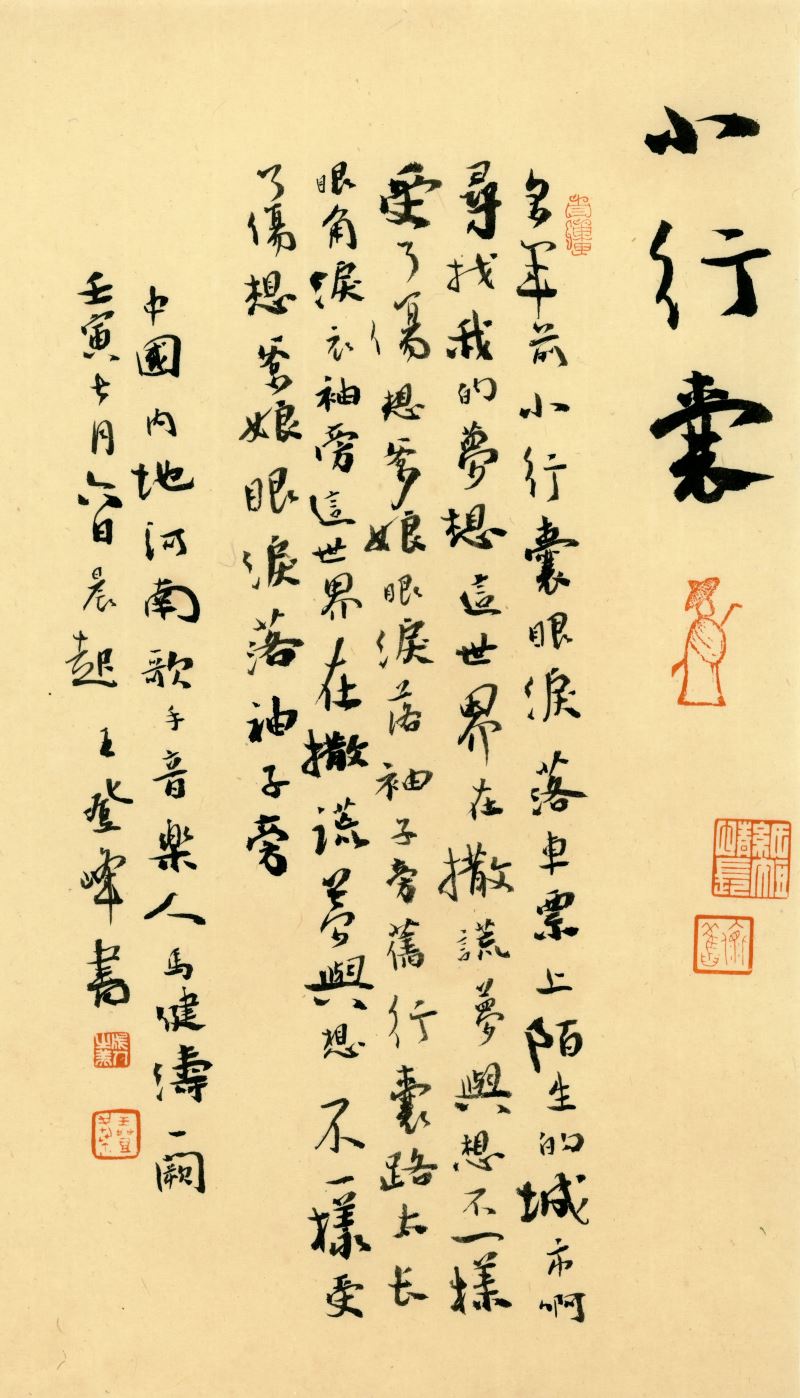 小行囊
多年前小行囊眼淚落車票上陌生的城市啊
尋找我的夢想這世界在撒謊夢與想不一樣
受了傷想爹娘眼淚落袖子旁舊行囊路太长
眼角淚衣袖旁這世界在撒謊夢與想不一樣受
了傷想爹娘眼淚落袖子旁
中國内地河南歌手音樂人馬健濤一闕
壬寅七月六日晨起王登峰书